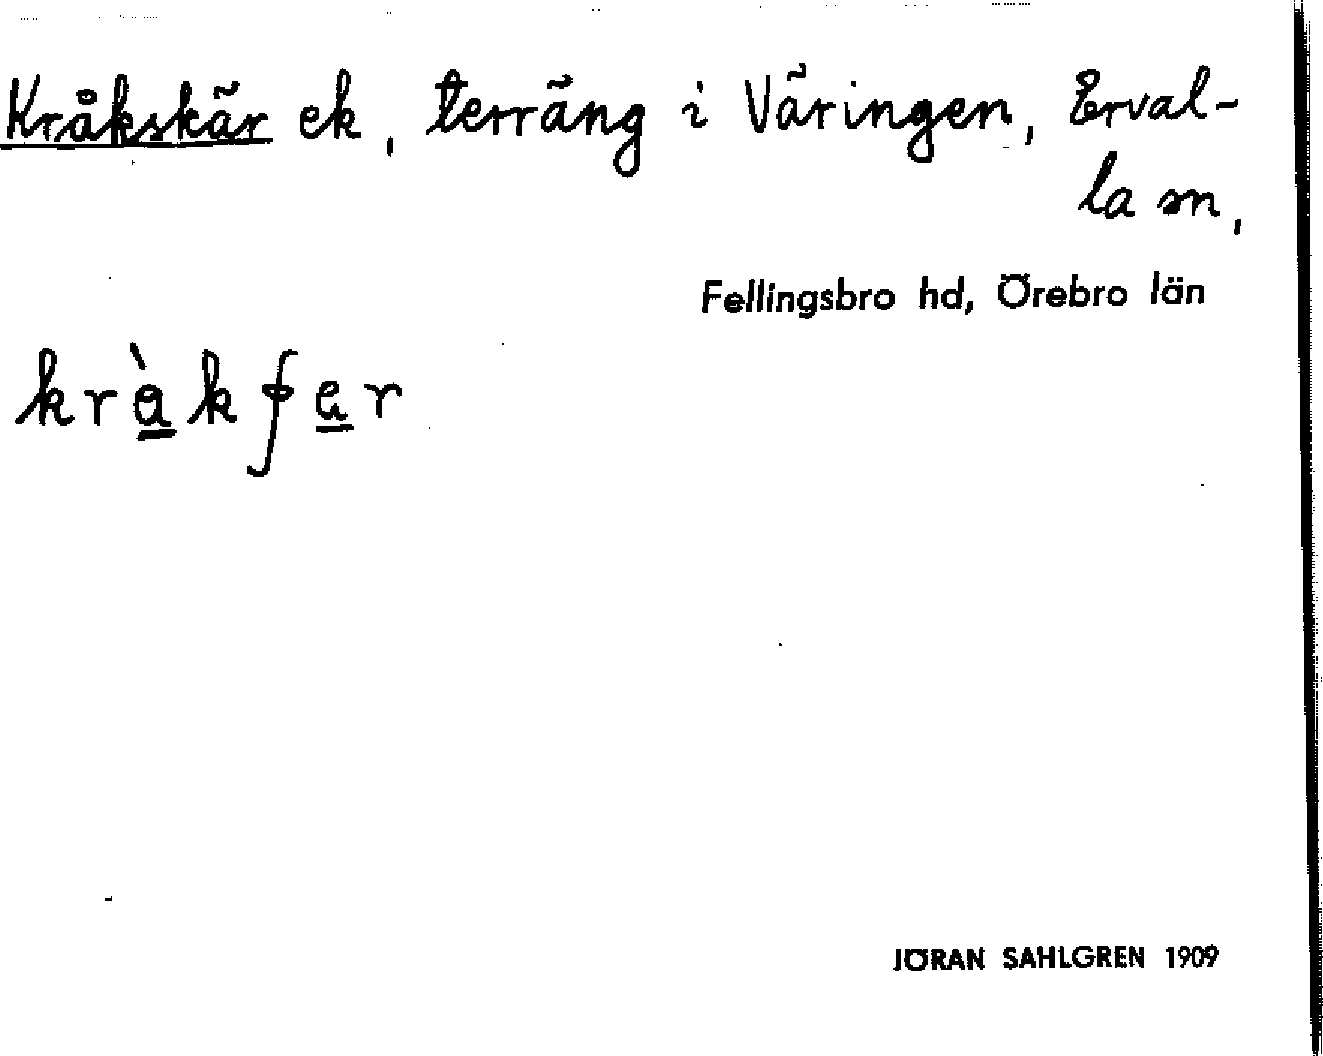 Kråkskär ek, terräng i Väringen, Erval-
la sn,
Fellingsbro hd, Örebro län
JÖRAN SAHLGREN 1909